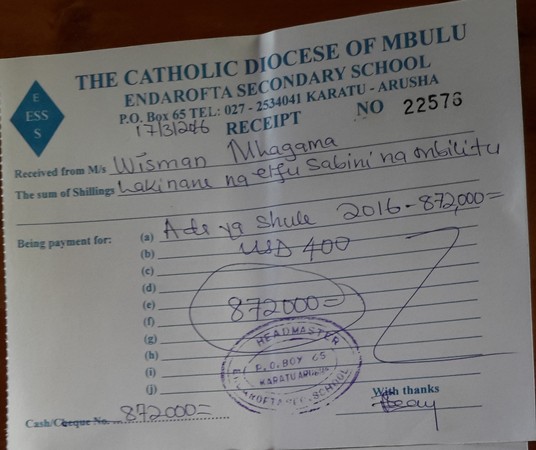 E
ESS
S
THE CATHOLIC DIOCESE OF MBULU
ENDAROFTA SECONDARY SCHOOL
P.O. Box 65 TEL: 027 - 2534041 KARATU - ARUSHA
17/3/2016 RECEIPT NO 22576
Received from M/s Wisman Mhagama
The sum of Shillings Laki nane na elfu sabini na mbili tu
Being payment for: (a) Ada ya Shule 2016 - 872,000=
(b) USD 400
(c)
(d)
(e) 872000=
(f)
(g)
(h)
(i)
(j)
HEADMASTER
P.O. BOX 65
KARATU ARUSHA
ENDAROFTA SEC. SCHOOL
With thanks
Cash/Cheque No. 872000=